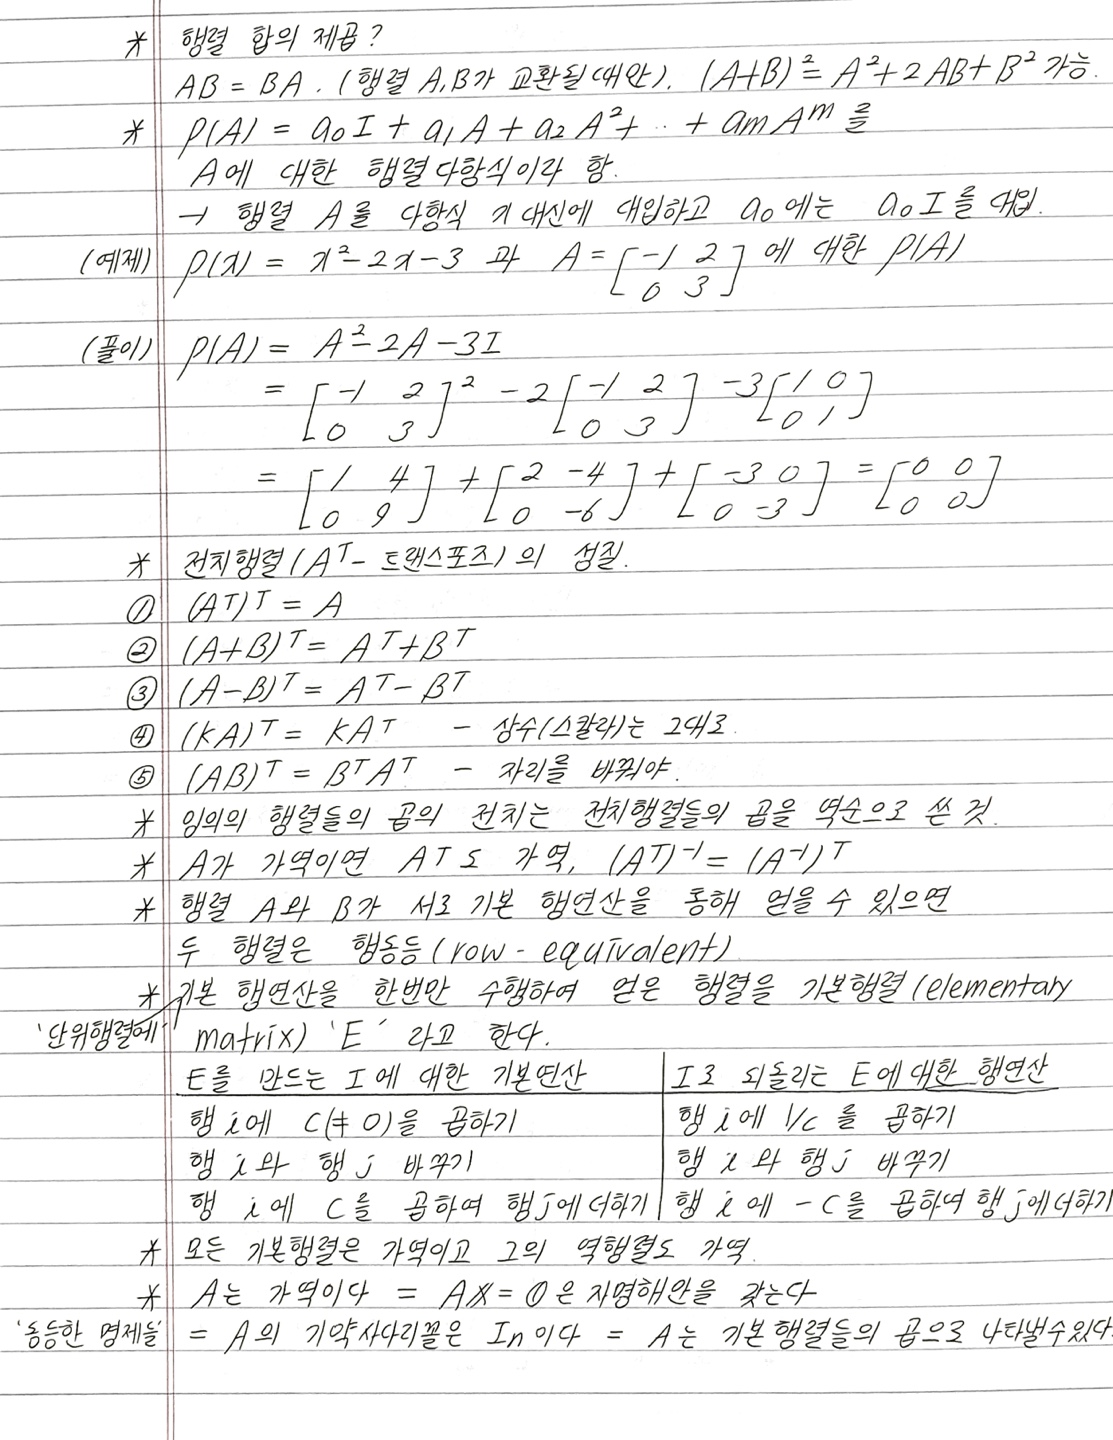 * 행렬 합의 제곱?
AB = BA. (행렬 A,B가 교환될 때만). (A+B)² = A²+2AB+B² 가능.
* P(A) = a₀I + a₁A + a₂A² + ‥ + amAᵐ 를
A에 대한 행렬다항식이라 함.
→ 행렬 A를 다항식 x 대신에 대입하고 a₀에는 a₀I를 대입.
(예제) P(x) = x²-2x-3 과 A = [-1 2; 0 3] 에 대한 P(A)
(풀이) P(A) = A²-2A-3I
= [-1 2; 0 3]² - 2[-1 2; 0 3] - 3[1 0; 0 1]
= [1 4; 0 9] + [2 -4; 0 -6] + [-3 0; 0 -3] = [0 0; 0 0]
* 전치행렬(Aᵀ- 트랜스포즈)의 성질.
① (Aᵀ)ᵀ = A
② (A+B)ᵀ = Aᵀ+Bᵀ
③ (A-B)ᵀ = Aᵀ-Bᵀ
④ (KA)ᵀ = KAᵀ - 상수(스칼라)는 그대로.
⑤ (AB)ᵀ = BᵀAᵀ - 자리를 바꿔야.
* 임의의 행렬들의 곱의 전치는 전치행렬들의 곱을 역순으로 쓴 것.
* A가 가역이면 Aᵀ도 가역, (Aᵀ)⁻¹ = (A⁻¹)ᵀ
* 행렬 A와 B가 서로 기본 행연산을 통해 얻을 수 있으면
두 행렬은 행동등(row - equivalent)
* 기본 행연산을 한번만 수행하여 얻은 행렬을 기본행렬(elementary
'단위행렬에' matrix) 'E' 라고 한다.
E를 만드는 I에 대한 기본연산 | I로 되돌리는 E에 대한 행연산
행 i에 C(≠0)을 곱하기 | 행 i에 1/c 를 곱하기
행 i와 행 j 바꾸기 | 행 i와 행 j 바꾸기
행 i에 C를 곱하여 행 j에 더하기 | 행 i에 -C를 곱하여 행 j에 더하기
* 모든 기본행렬은 가역이고 그의 역행렬도 가역.
* A는 가역이다 = Ax = 0은 자명해만을 갖는다
'동등한 명제들' = A의 기약사다리꼴은 In이다 = A는 기본행렬들의 곱으로 나타낼수있다.